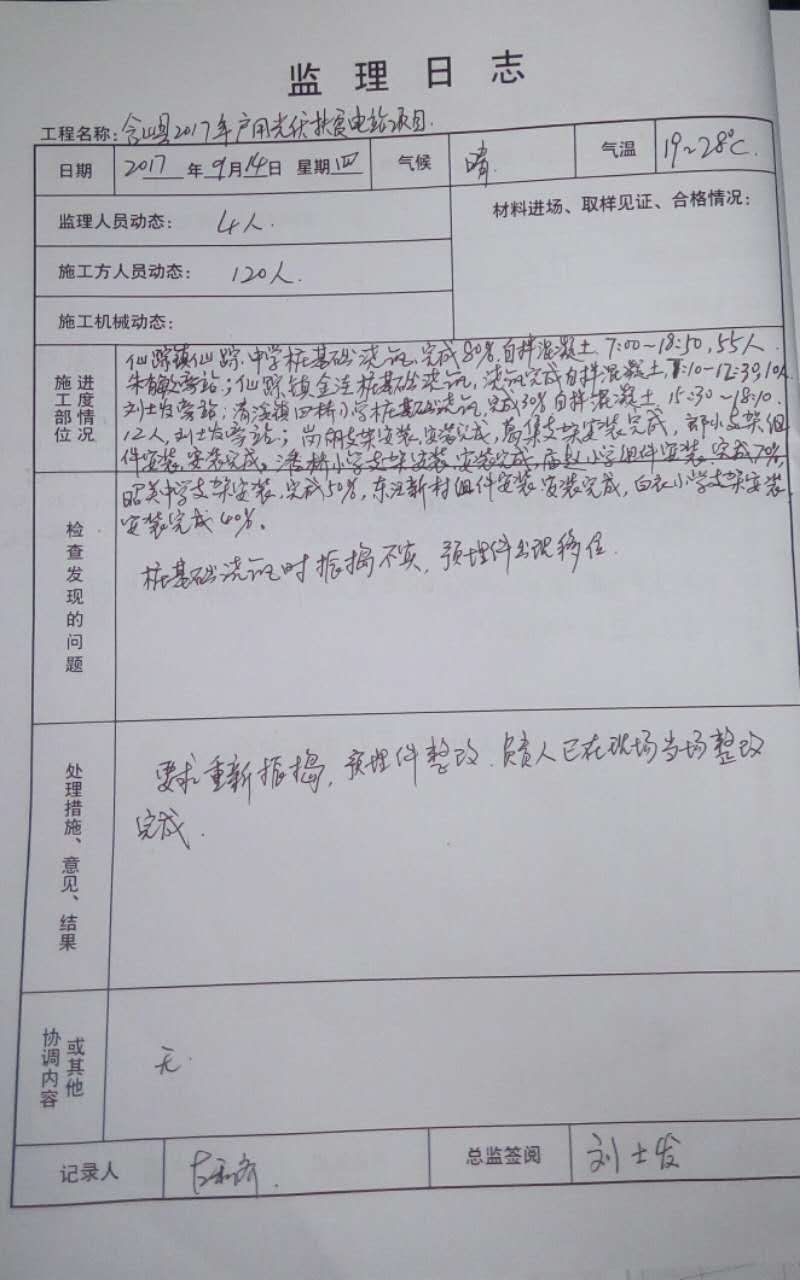 监理日志
工程名称：含山县2017年户用光伏扶贫电站项目.
日期 2017年9月14日 星期四 气候 晴. 气温 19~28℃.
监理人员动态： 4人. 材料进场、取样见证、合格情况：
施工方人员动态： 120人.
施工机械动态：
施工部位 进度情况
仙踪镇仙踪中学桩基础浇筑,完成80%,自拌混凝土 7:00~18:50,55人
旁站;仙踪镇 桩基础浇筑,浇筑完成自拌混凝土, :10~12:30,10人
刘士发旁站;清溪镇四桥小学桩基础浇筑,完成30%自拌混凝土 15:30~18:10.
12人,刘士发旁站; 支架安装,安装完成, 集支架安装完成, 小支架组
件安装,安装完成。 桥小学支架安装,安装完成,庙赵小学组件安装,完成70%,
昭关中学支架安装,完成50%,东 新村组件安装,安装完成,白衣小学支架安装,
安装完成40%。
检查发现的问题
桩基础浇筑时振捣不实,预埋件出现移位.
处理措施、意见、结果
要求重新振捣,预埋件整改.负责人已在现场当场整改
完成.
协调内容 或其他
无.
记录人 总监签阅 刘士发